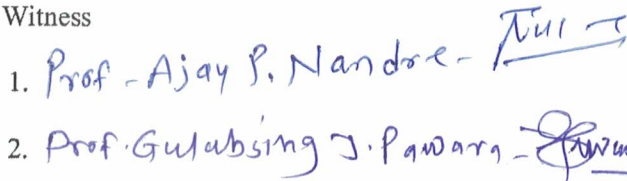 Witness
1. Prof - Ajay P. Nandre -
2. Prof. Gulabsing J. Pawara -